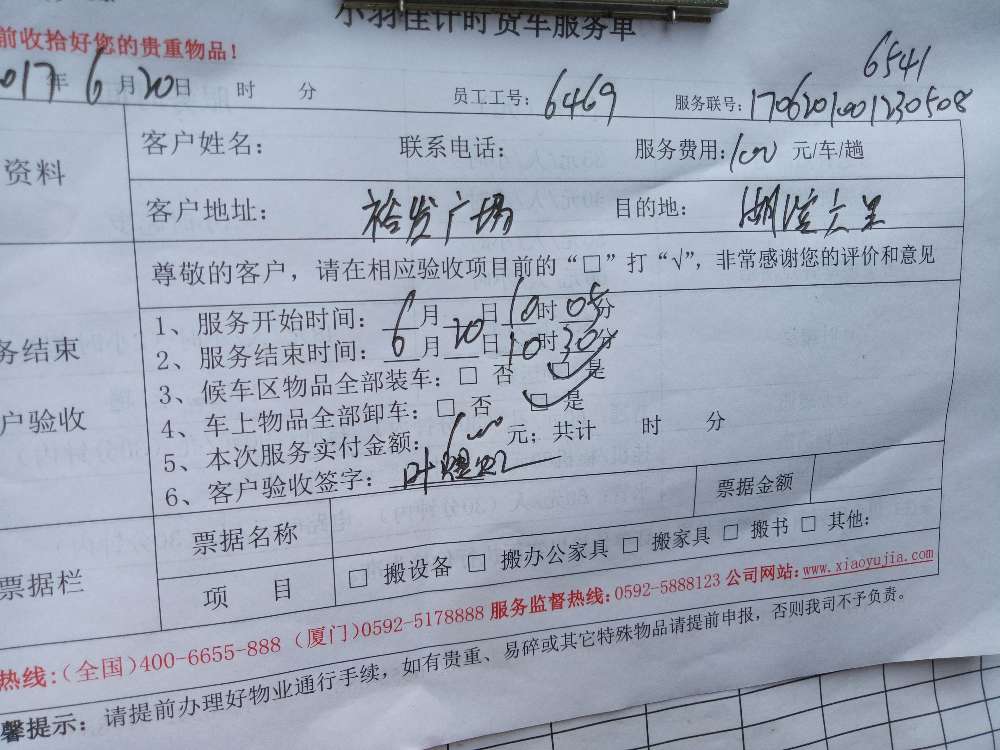 小羽佳计时货车服务单
前收拾好您的贵重物品！
6541
2017年6月20日 时 分 员工工号：6469 服务联号：1706201001230508
资料 客户姓名： 联系电话： 服务费用：100 元/车/趟
客户地址：裕发广场 目的地：湖滨六里
尊敬的客户，请在相应验收项目前的“□”打“√”，非常感谢您的评价和意见
1、服务开始时间：6月20日10时05分
务结束 2、服务结束时间：6月20日10时30分
3、候车区物品全部装车：□ 否 □ 是
户验收 4、车上物品全部卸车：□ 否 □ 是
5、本次服务实付金额：100元；共计 时 分
6、客户验收签字：叶
票据栏 票据名称 票据金额
项 目 □ 搬设备 □ 搬办公家具 □ 搬家具 □ 搬书 □ 其他：
热线：（全国）400-6655-888（厦门）0592-5178888 服务监督热线：0592-5888123 公司网站：www.xiaoyujia.com
馨提示：请提前办理好物业通行手续，如有贵重、易碎或其它特殊物品请提前申报，否则我司不予负责。